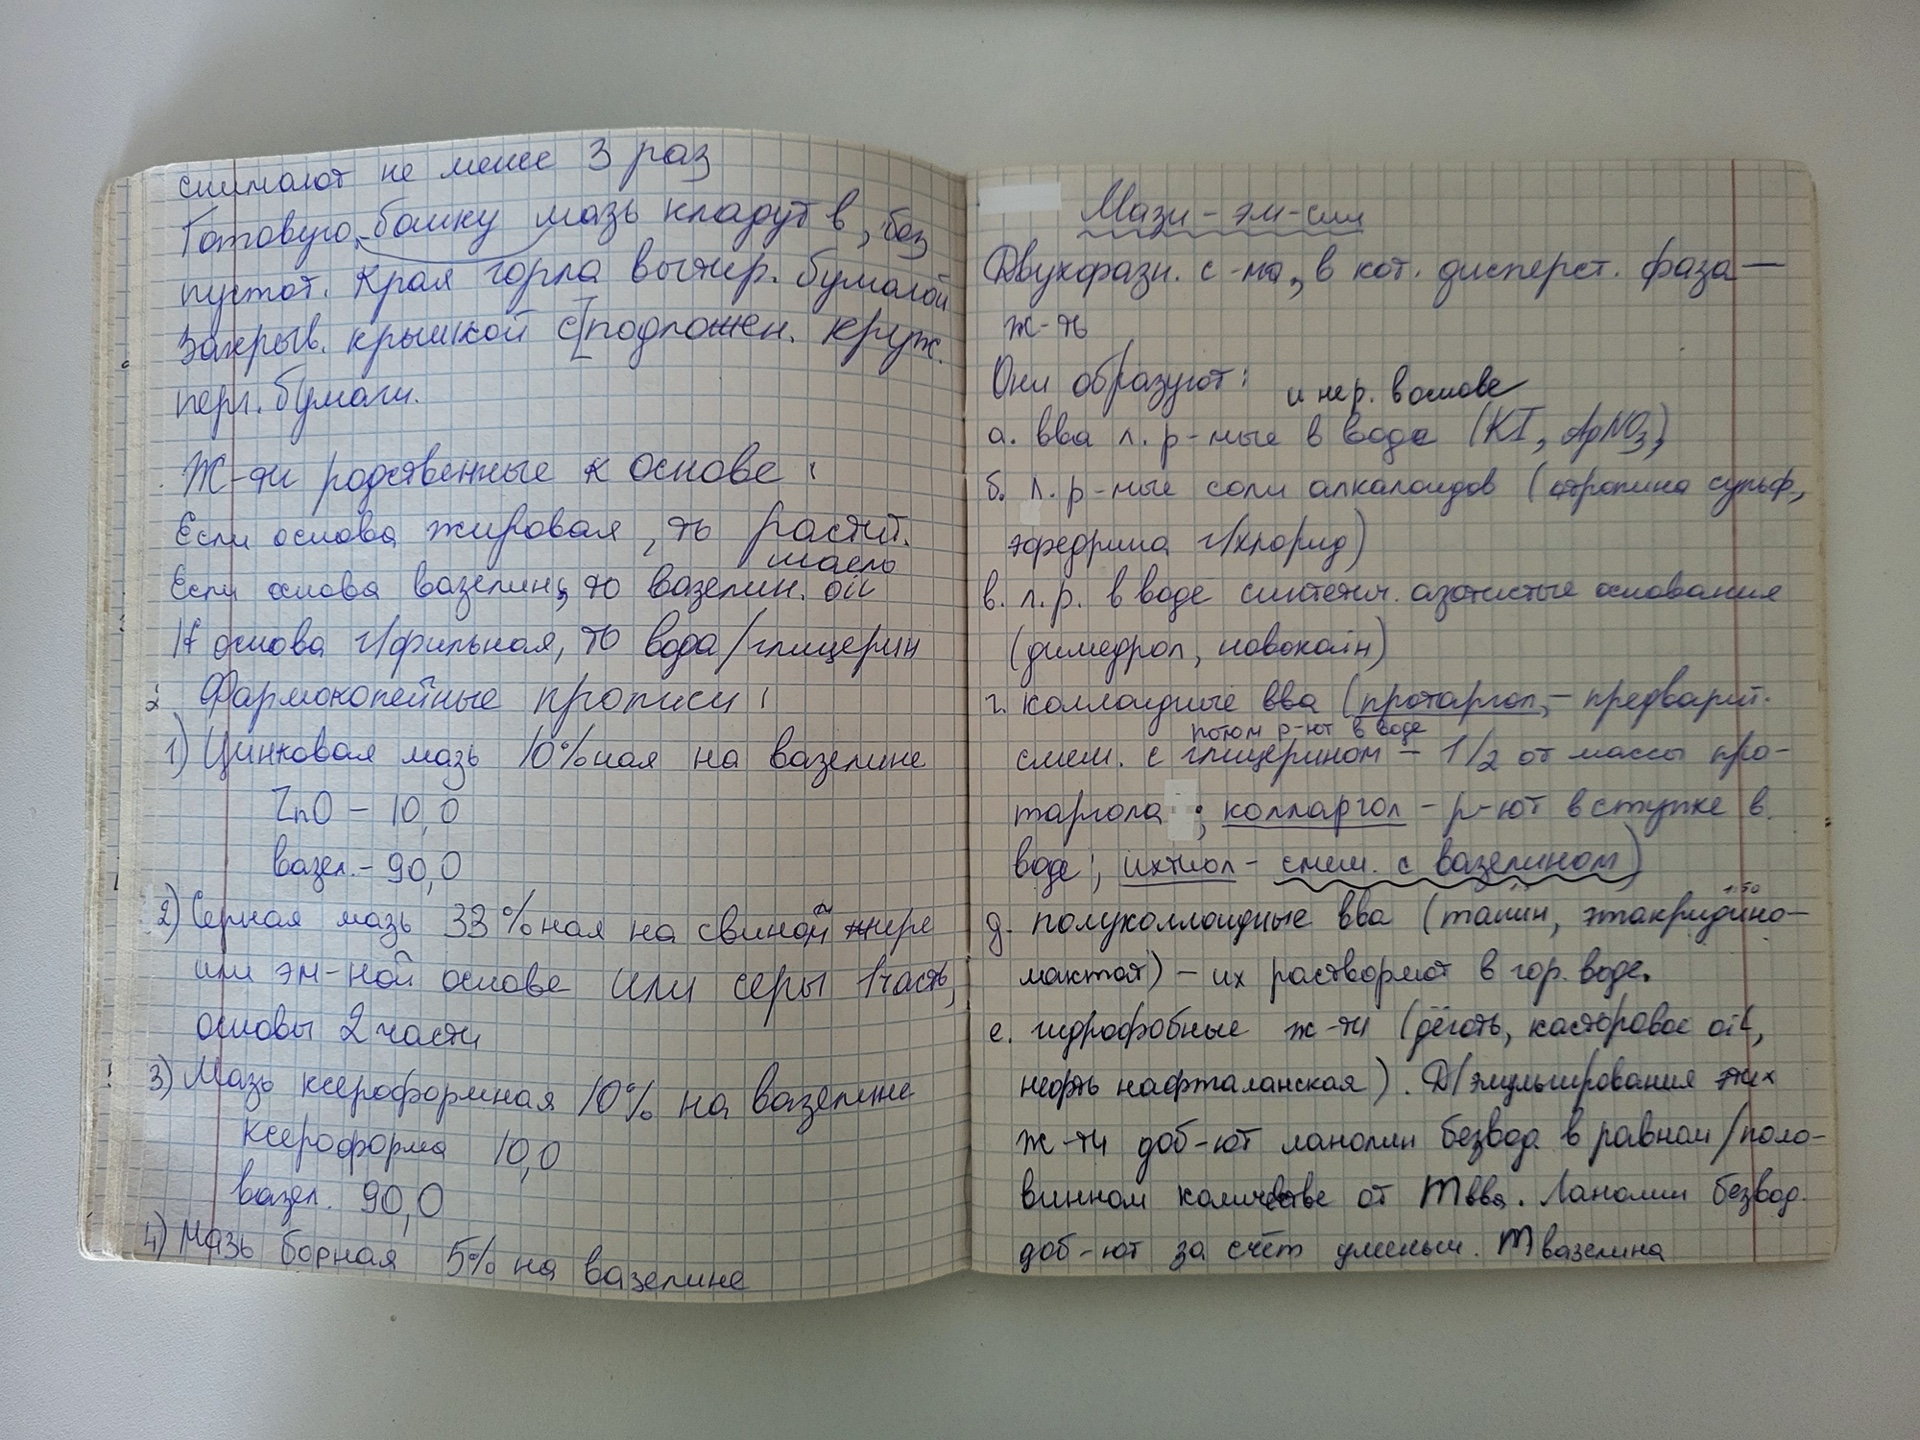 снимают не менее 3 раз
Готовую банку мазь кладут в, без
пустот. Края горла вытир. бумагой
закрыв. крышкой с[подложен. круж.
перг. бумаги.
Ж-ти родственные к основе:
Если основа жировая, то растит.
масло
Если основа вазелин, то вазелин. oil
If основа г/фильная, то вода/глицерин
Фармакопейные прописи:
1) Цинковая мазь 10%ная на вазелине
ZnO – 10,0
вазел. – 90,0
2) Серная мазь 33%ная на свином жире
или эм-ной основе или серы 1часть,
основы 2 части
3) Мазь ксероформная 10% на вазелине
ксероформа 10,0
вазел. 90,0
4) Мазь борная 5% на вазелине
Мази – эм-сии
Двухфазн. с-ма, в кот. дисперст. фаза —
ж-ть
Они образуют:
и нер. в основе
а. вва л. р-мые в воде (KI, AgNO3)
б. л. р-мые соли алкалоидов (атропина сульф,
эфедрина г/хлорид)
в. л.р. в воде синтетич. азотистые основания
(димедрол, новокаин)
г. коллоидные вва (протаргол, – предварит.
потом р-ют в воде
смеш. с глицерином – 1/2 от массы про-
таргола ; колларгол – р-ют в ступке в.
воде; ихтиол – смеш. с вазелином)
д. полуколлоидные вва (танин, этакридина-
1:50
лактат) – их растворяют в гор. воде.
е. гидрофобные ж-ти (дёготь, касторовое oil,
нефть нафталанская). Д/эмульгирования этих
ж-ти доб-ют ланолин безвод. в равном/поло-
винном количестве от m вва. Ланолин безвод.
доб-ют за счёт уменьш. m вазелина